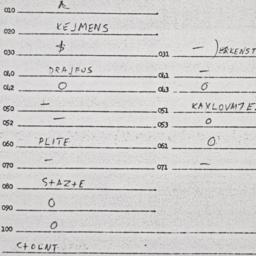 010 k
020 KEJMENS
030 $ 031 — )ERKENST
040 DRAJFUS 041 —
042 O 043 O
050 — 051 KAXLOVATE.
052 — 053 O
060 PLITE 061 O
070 — 071 —
080 S+AZ+E
090 O
100 O
C+OUNT